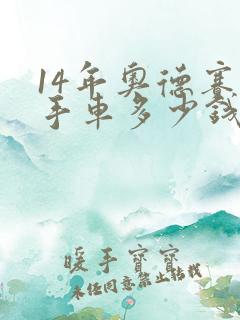 14年奥德赛
手车多少钱
暖手宝宝
未经同意禁止转载